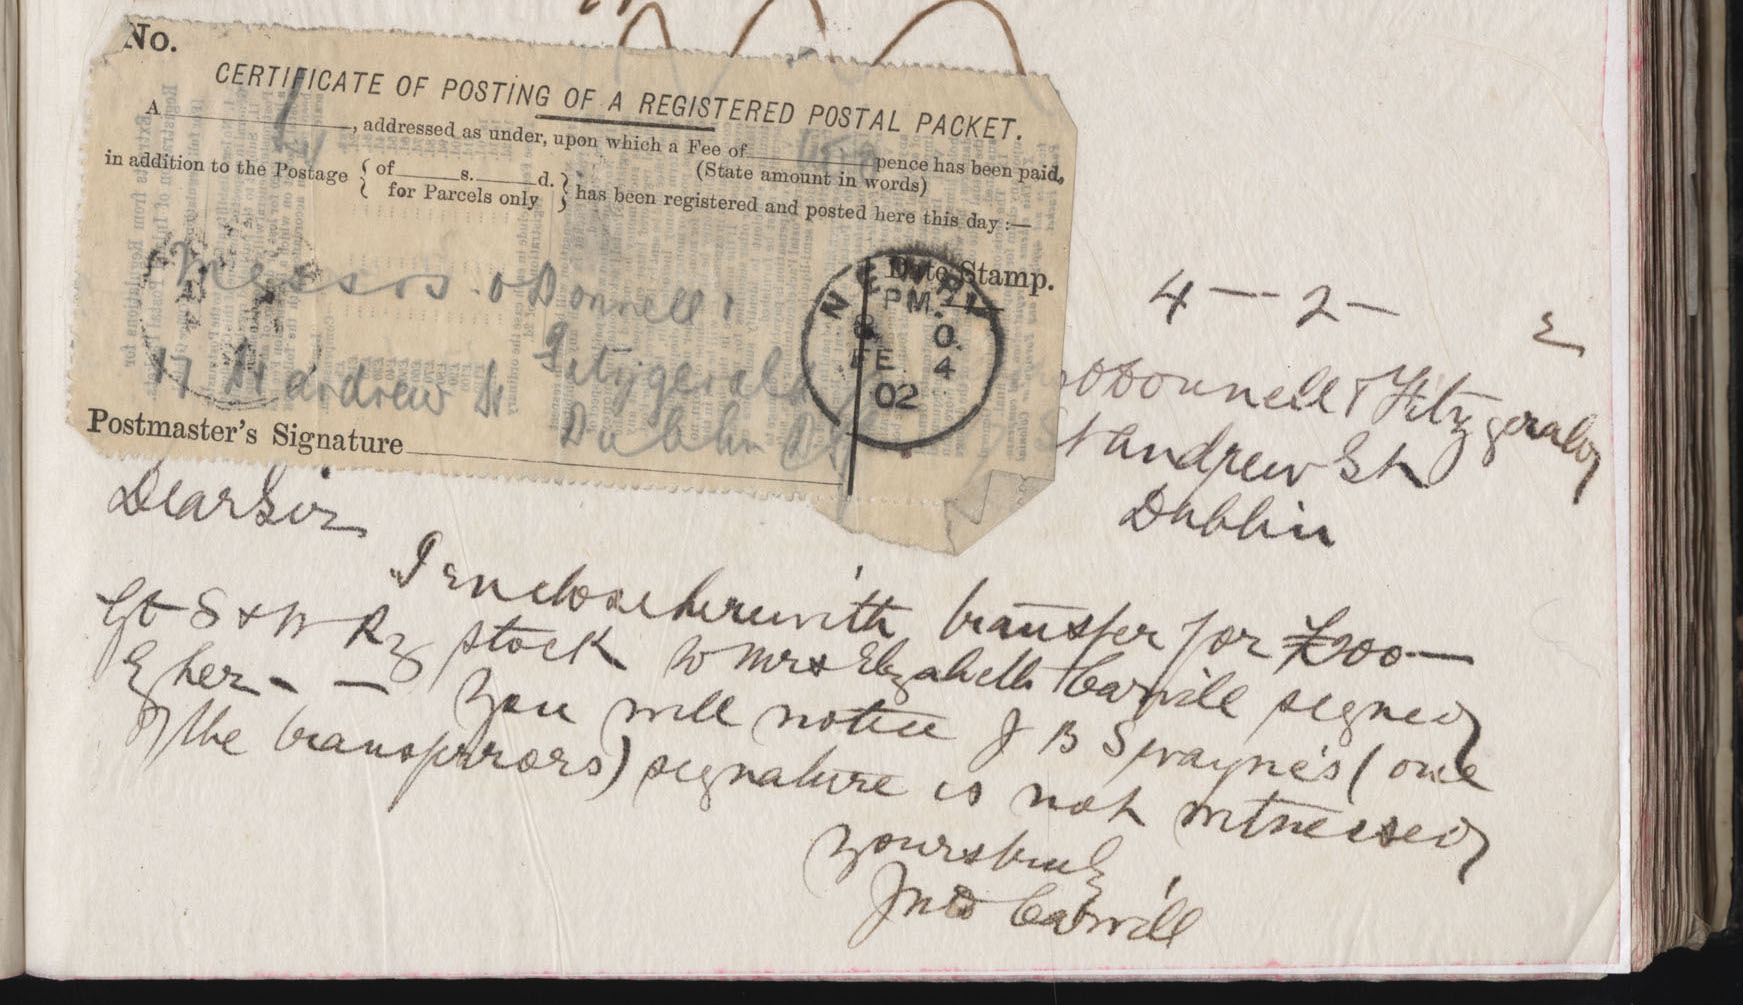 No.
CERTIFICATE OF POSTING OF A REGISTERED POSTAL PACKET.
A , addressed as under, upon which a Fee of pence has been paid,
(State amount in words)
in addition to the Postage { of s. d. } has been registered and posted here this day :—
for Parcels only
Date Stamp.
NEWRY
PM.
8. 0.
FE 4
02
Messrs O Donnell &
Fitzgerald
17 St Andrew St
Dublin
Postmaster's Signature
4 — 2 — 2
O Donnell & Fitzgerald
St Andrew St
Dublin
Dear Sir
I enclose herewith transfer for £200 —
Gt S & W Ry stock to Mrs Elizabeth Carvill signed
by her - — You will notice J B Swayne's (one
of the transferrors) signature is not witnessed
Yours truly
Jno Carvill